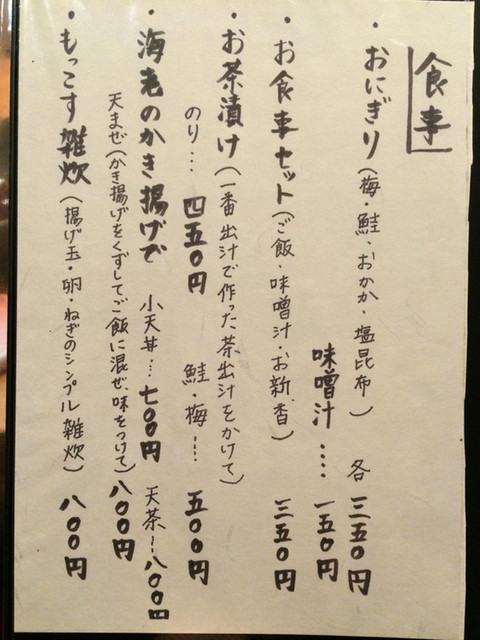 食事
・おにぎり(梅・鮭、おかか・塩昆布) 各 三五〇円
味噌汁‥‥ 一五〇円
・お食事セット(ご飯・味噌汁・お新香) 三五〇円
・お茶漬け(一番出汁で作った茶出汁をかけて)
のり‥‥ 四五〇円 鮭・梅‥‥ 五〇〇円
・海老のかき揚げで 小天丼‥‥ 七〇〇円 天茶‥‥ 八〇〇円
天まぜ(かき揚げをくずしてご飯に混ぜ、味をつけて) 八〇〇円
・もっこす雑炊(揚げ玉・卵・ねぎのシンプル雑炊) 八〇〇円